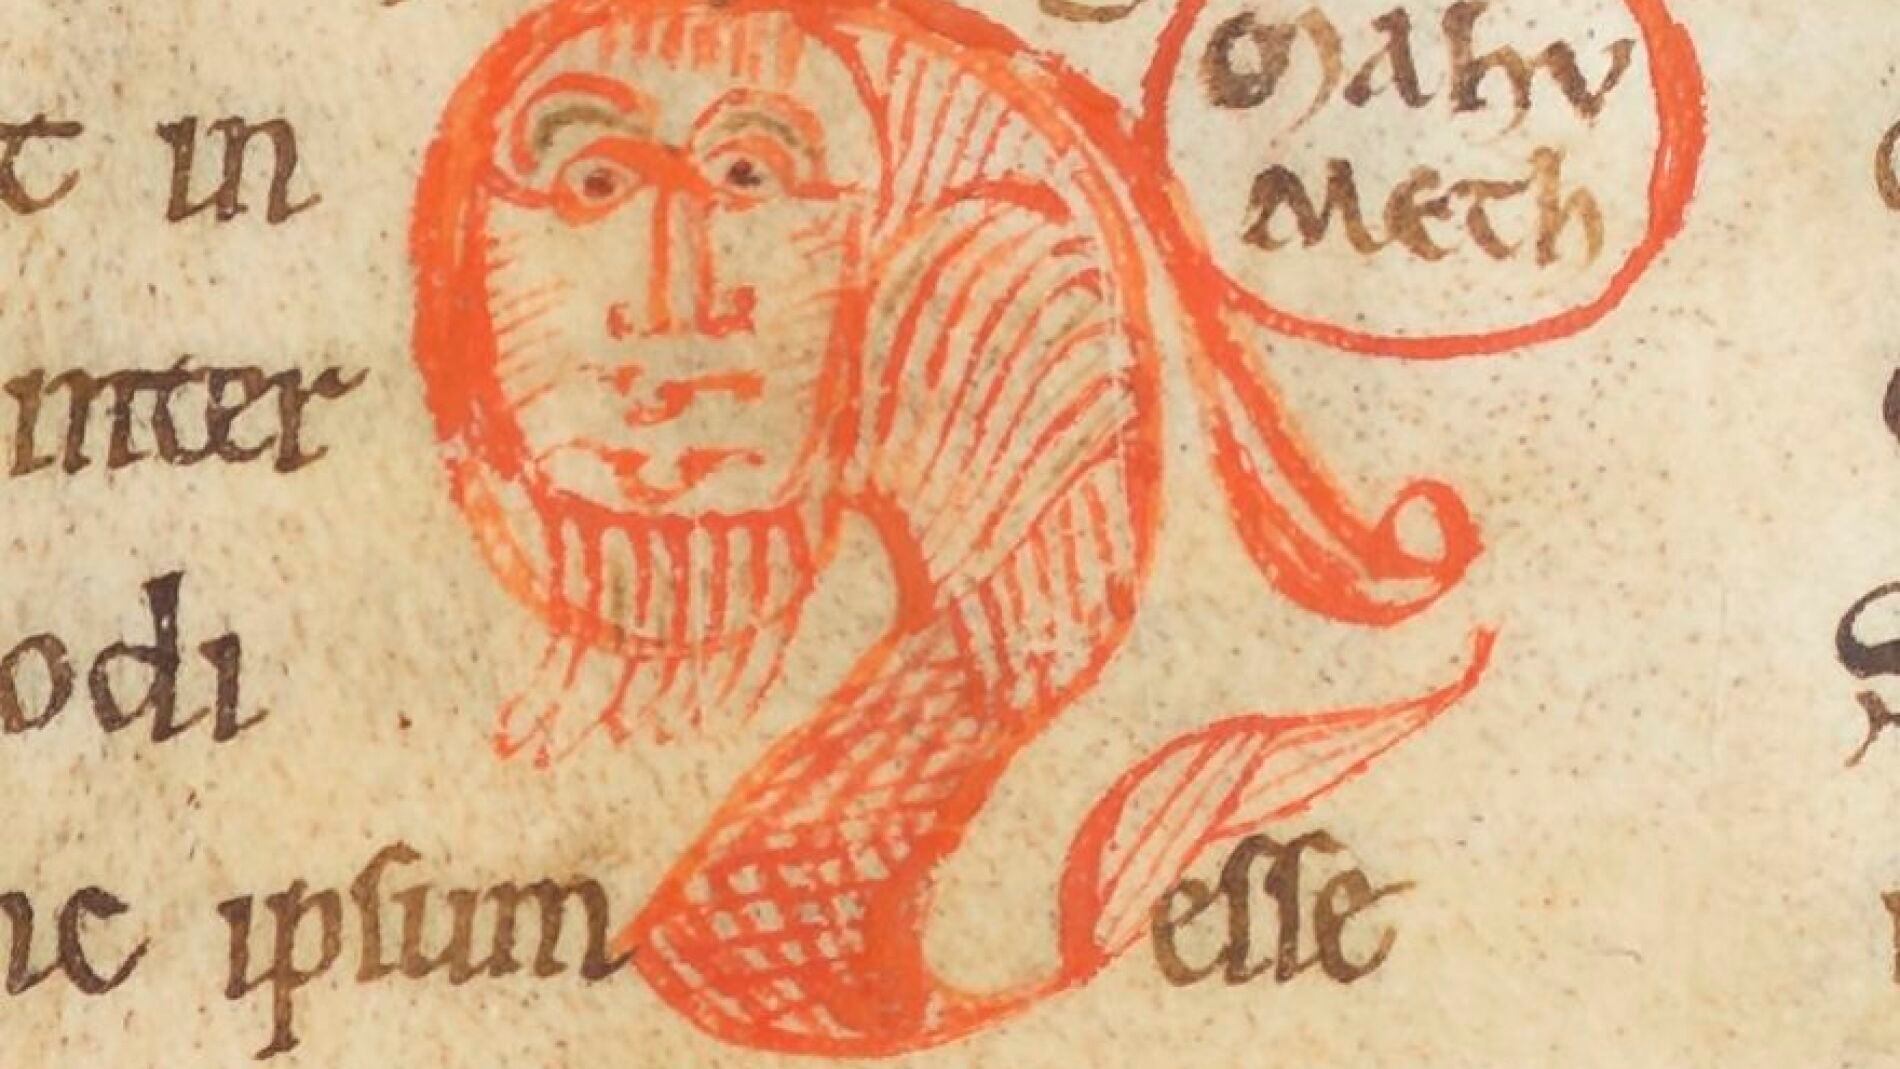 Mahu
Meth
t in
inter
odi
ic ipsum esse